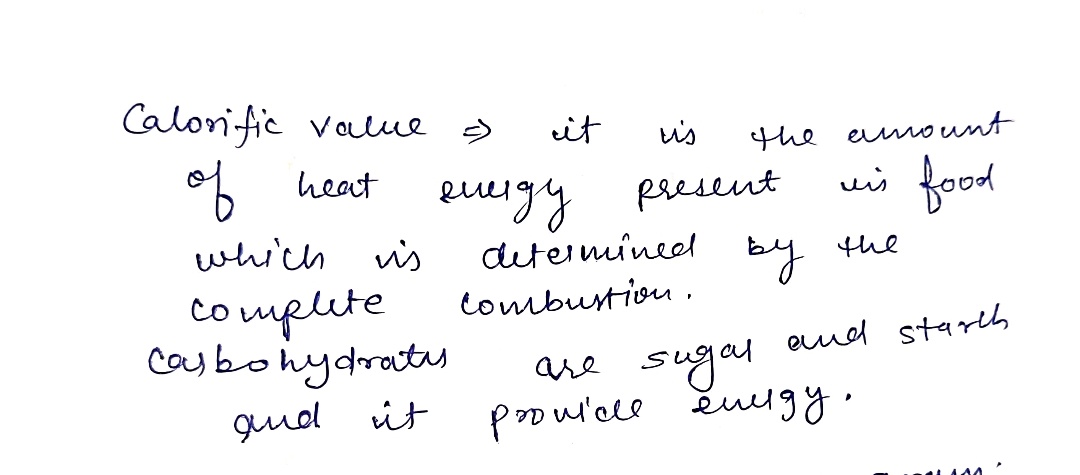 Calorific value ⇒ it is the amount
of heat energy present in food
which is determined by the
complete combustion.
Carbohydrates are sugar and starch
and it provide energy.